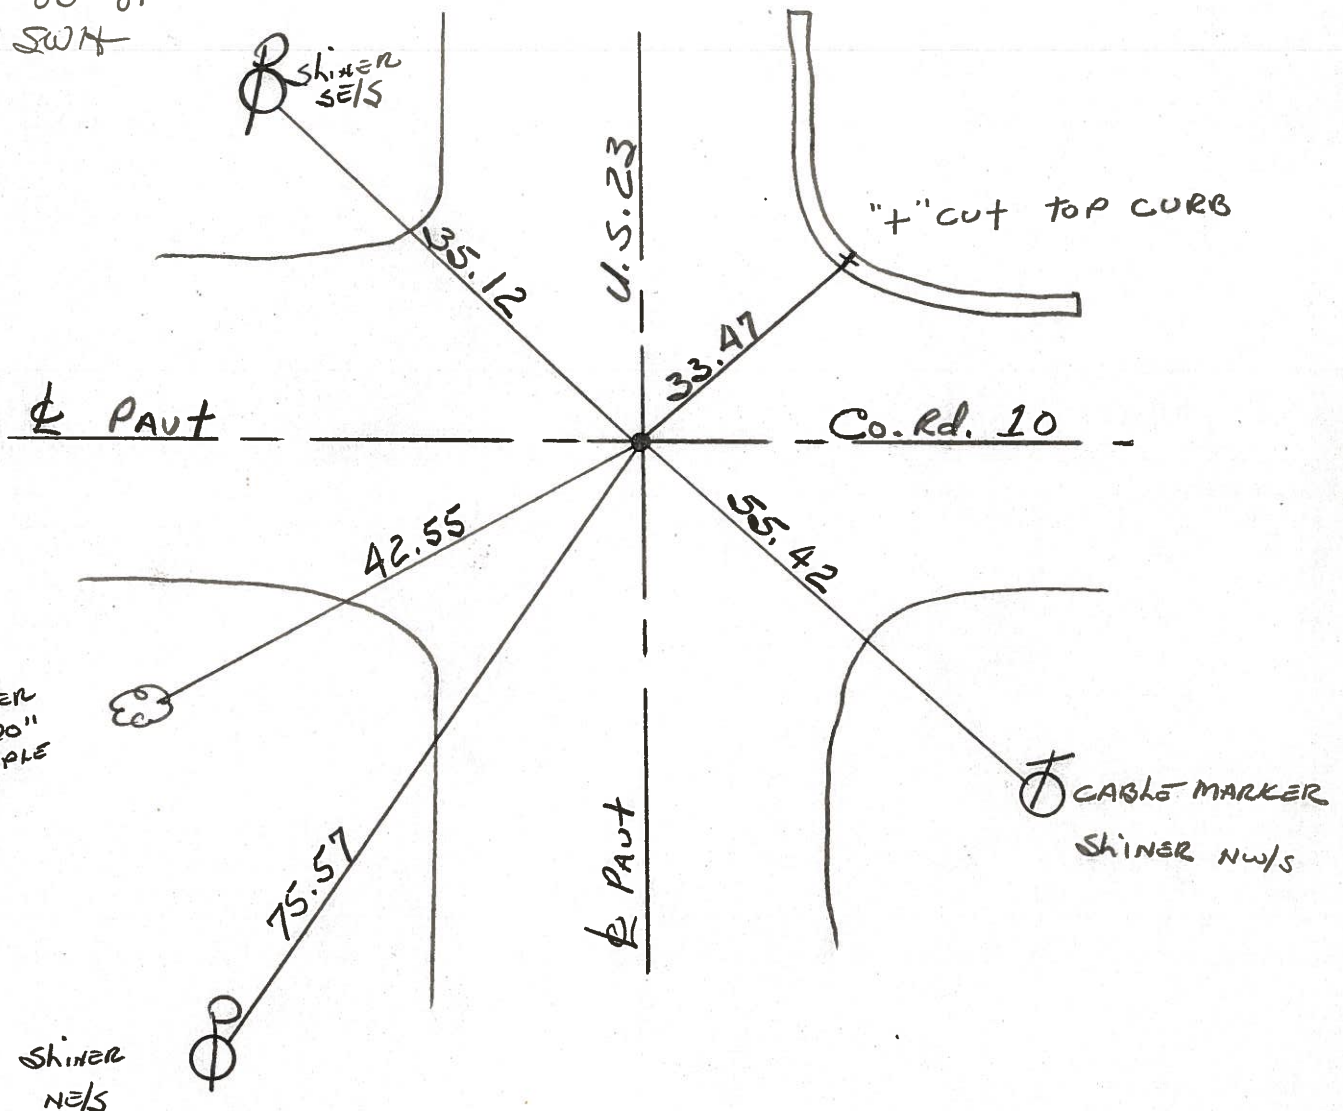 SWH
Shiner
SE/S
35.12
U.S.23
"+" cut TOP CURB
33.47
℄ PAVt
Co. Rd. 10
42.55
55.42
ER
20"
PLE
CABLE MARKER
ShiNER NW/S
℄ PAVt
75.57
ShiNER
NE/S